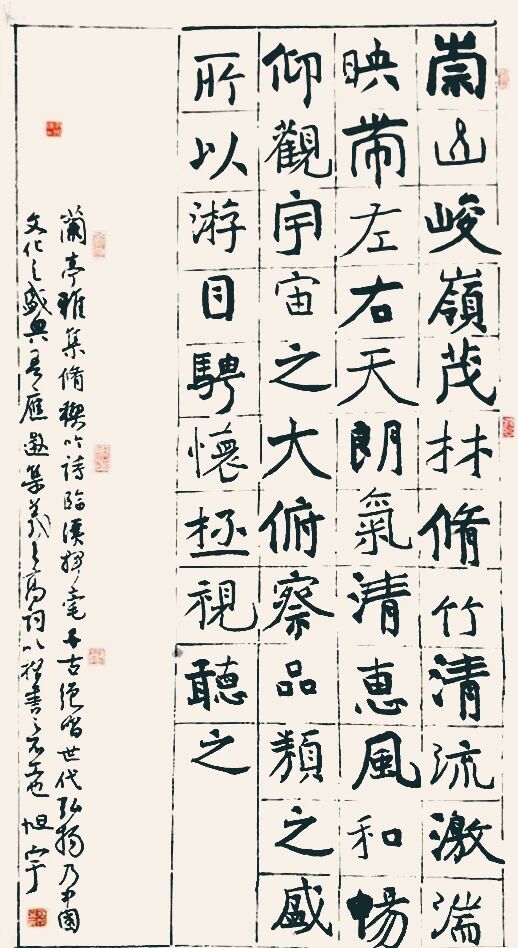 崇山峻嶺茂林脩竹清流激湍
映帶左右天朗氣清惠風和暢
仰觀宇宙之大俯察品類之盛
所以游目騁懷極視聽之
蘭亭雅集脩禊吟詩臨揮毫千古絕唱世代弘揚乃中國
文化之盛典吾應邀集羲之高詞以楷書之不工也 旭宇